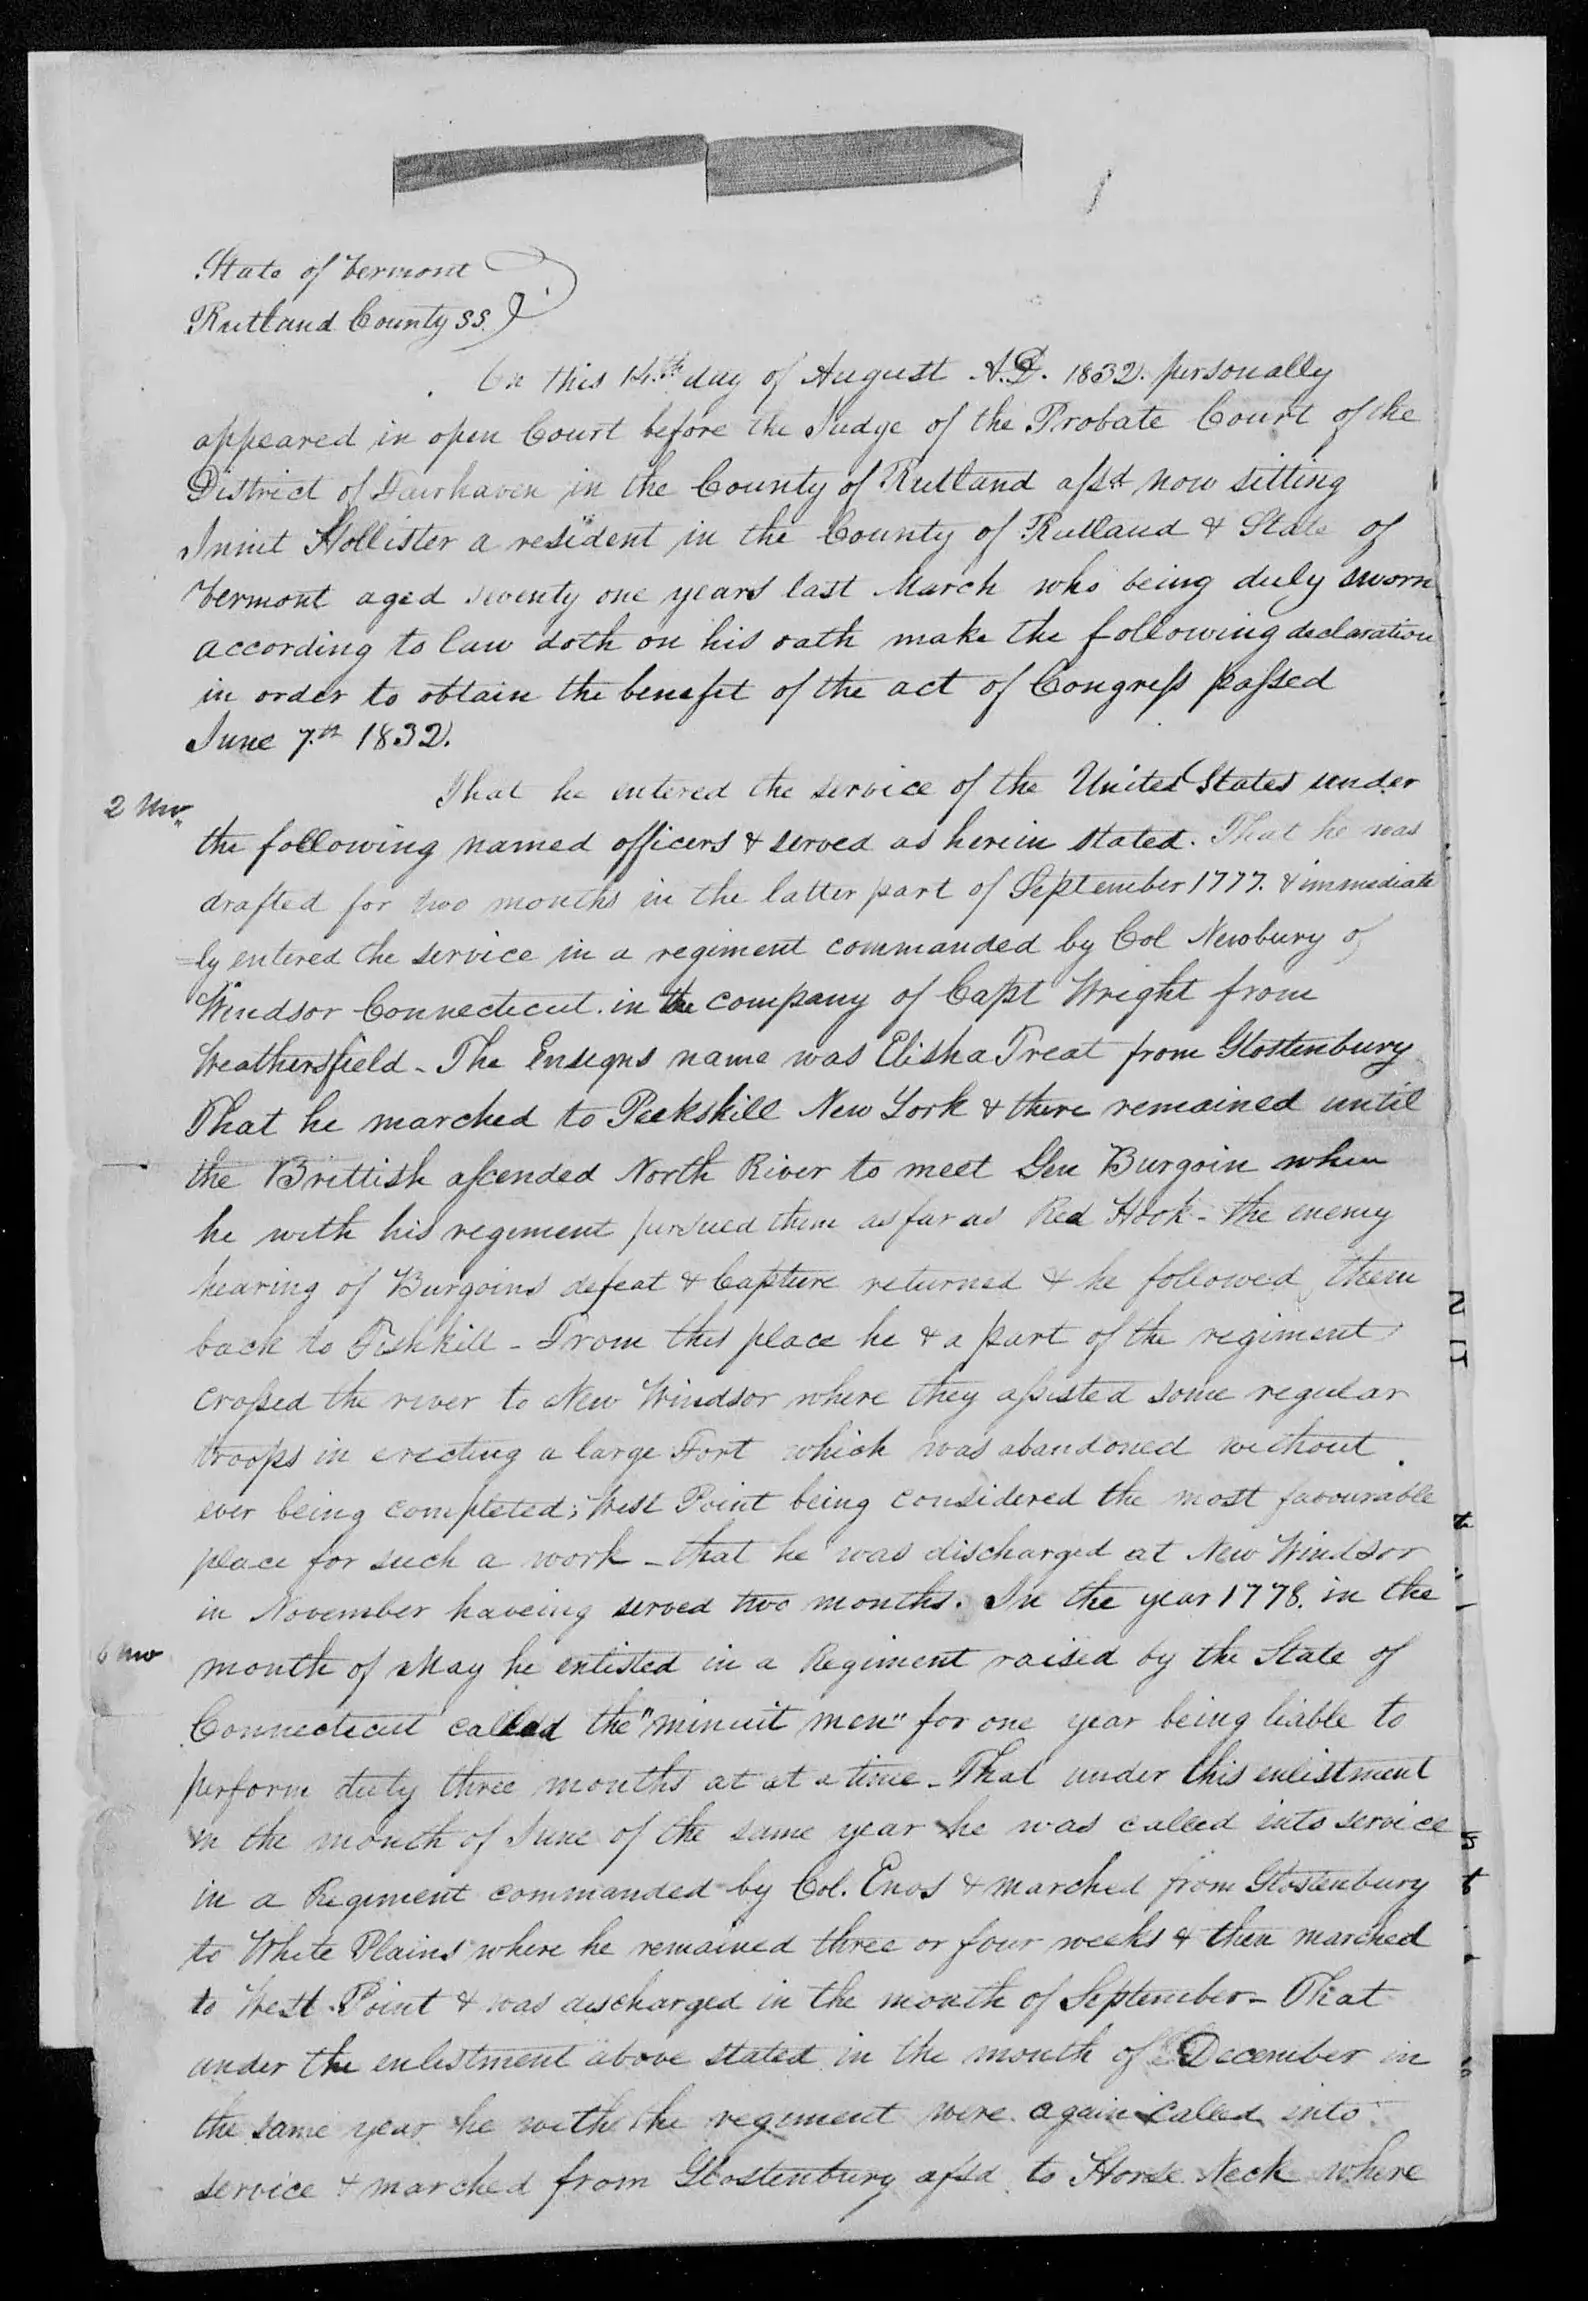 State of Vermont
Rutland County SS.
On this 14.th day of August A.D. 1832. personally
appeared in open Court before the Judge of the Probate Court of the
District of Fairhaven in the County of Rutland afsd now sitting
Innit Hollister a resident in the County of Rutland & State of
Vermont aged seventy one years last March who being duly sworn
according to law doth on his oath make the following declaration
in order to obtain the benefit of the act of Congress passed
June 7.th 1832.
That he entered the service of the United States under
2 mo.
the following named officers & served as herein stated. That he was
drafted for two months in the latter part of September 1777. & immediate
=ly entered the service in a regiment commanded by Col Newbury of
Windsor Connecticut. in the company of Capt Wright from
Weathersfield - The Ensigns name was Elisha Treat from Glostenbury
That he marched to Peekskill New York & there remained until
the Brittish ascended North River to meet Gen Burgoin when
he with his regiment pursued them as far as Red Hook - the enemy
hearing of Burgoins defeat & Capture returned & he followed them
back to Fishkill - From this place he & a part of the regiment
crossed the river to New Windsor where they assisted some regular
troops in erecting a large Fort which was abandoned without
ever being completed; West Point being considered the most favourable
place for such a work - that he was discharged at New Windsor
in November haveing served two months. In the year 1778. in the
6 mo
month of May he enlisted in a Regiment raised by the State of
Connecticut called the "minuit men" for one year being liable to
perform duty three months at at a time - That under this enlistment
in the month of June of the same year he was called into service
in a Regiment commanded by Col. Enos & marched from Glostenbury
to White Plains where he remained three or four weeks & then marched
to West Point & was discharged in the month of September - That
under the enlistment above stated in the month of December in
the same year he with the regiment were again called into
service & marched from Glostenbury afsd to Horse Neck where